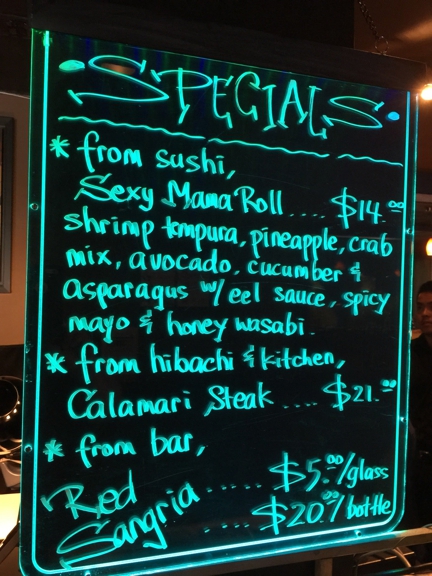 SPECIALS
* from sushi,
Sexy Mama Roll .... $14.00
shrimp tempura, pineapple, crab
mix, avocado, cucumber &
asparagus w/ eel sauce, spicy
mayo & honey wasabi.
* from hibachi & kitchen,
Calamari Steak .... $21.00
* from bar,
Red Sangria ..... $5.00/glass
.... $20.00/bottle